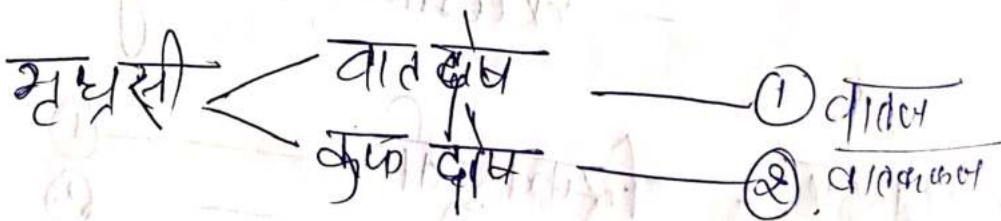 गृध्रसी < वात दोष — ① वातज
कफ दोष — ② वातकफज